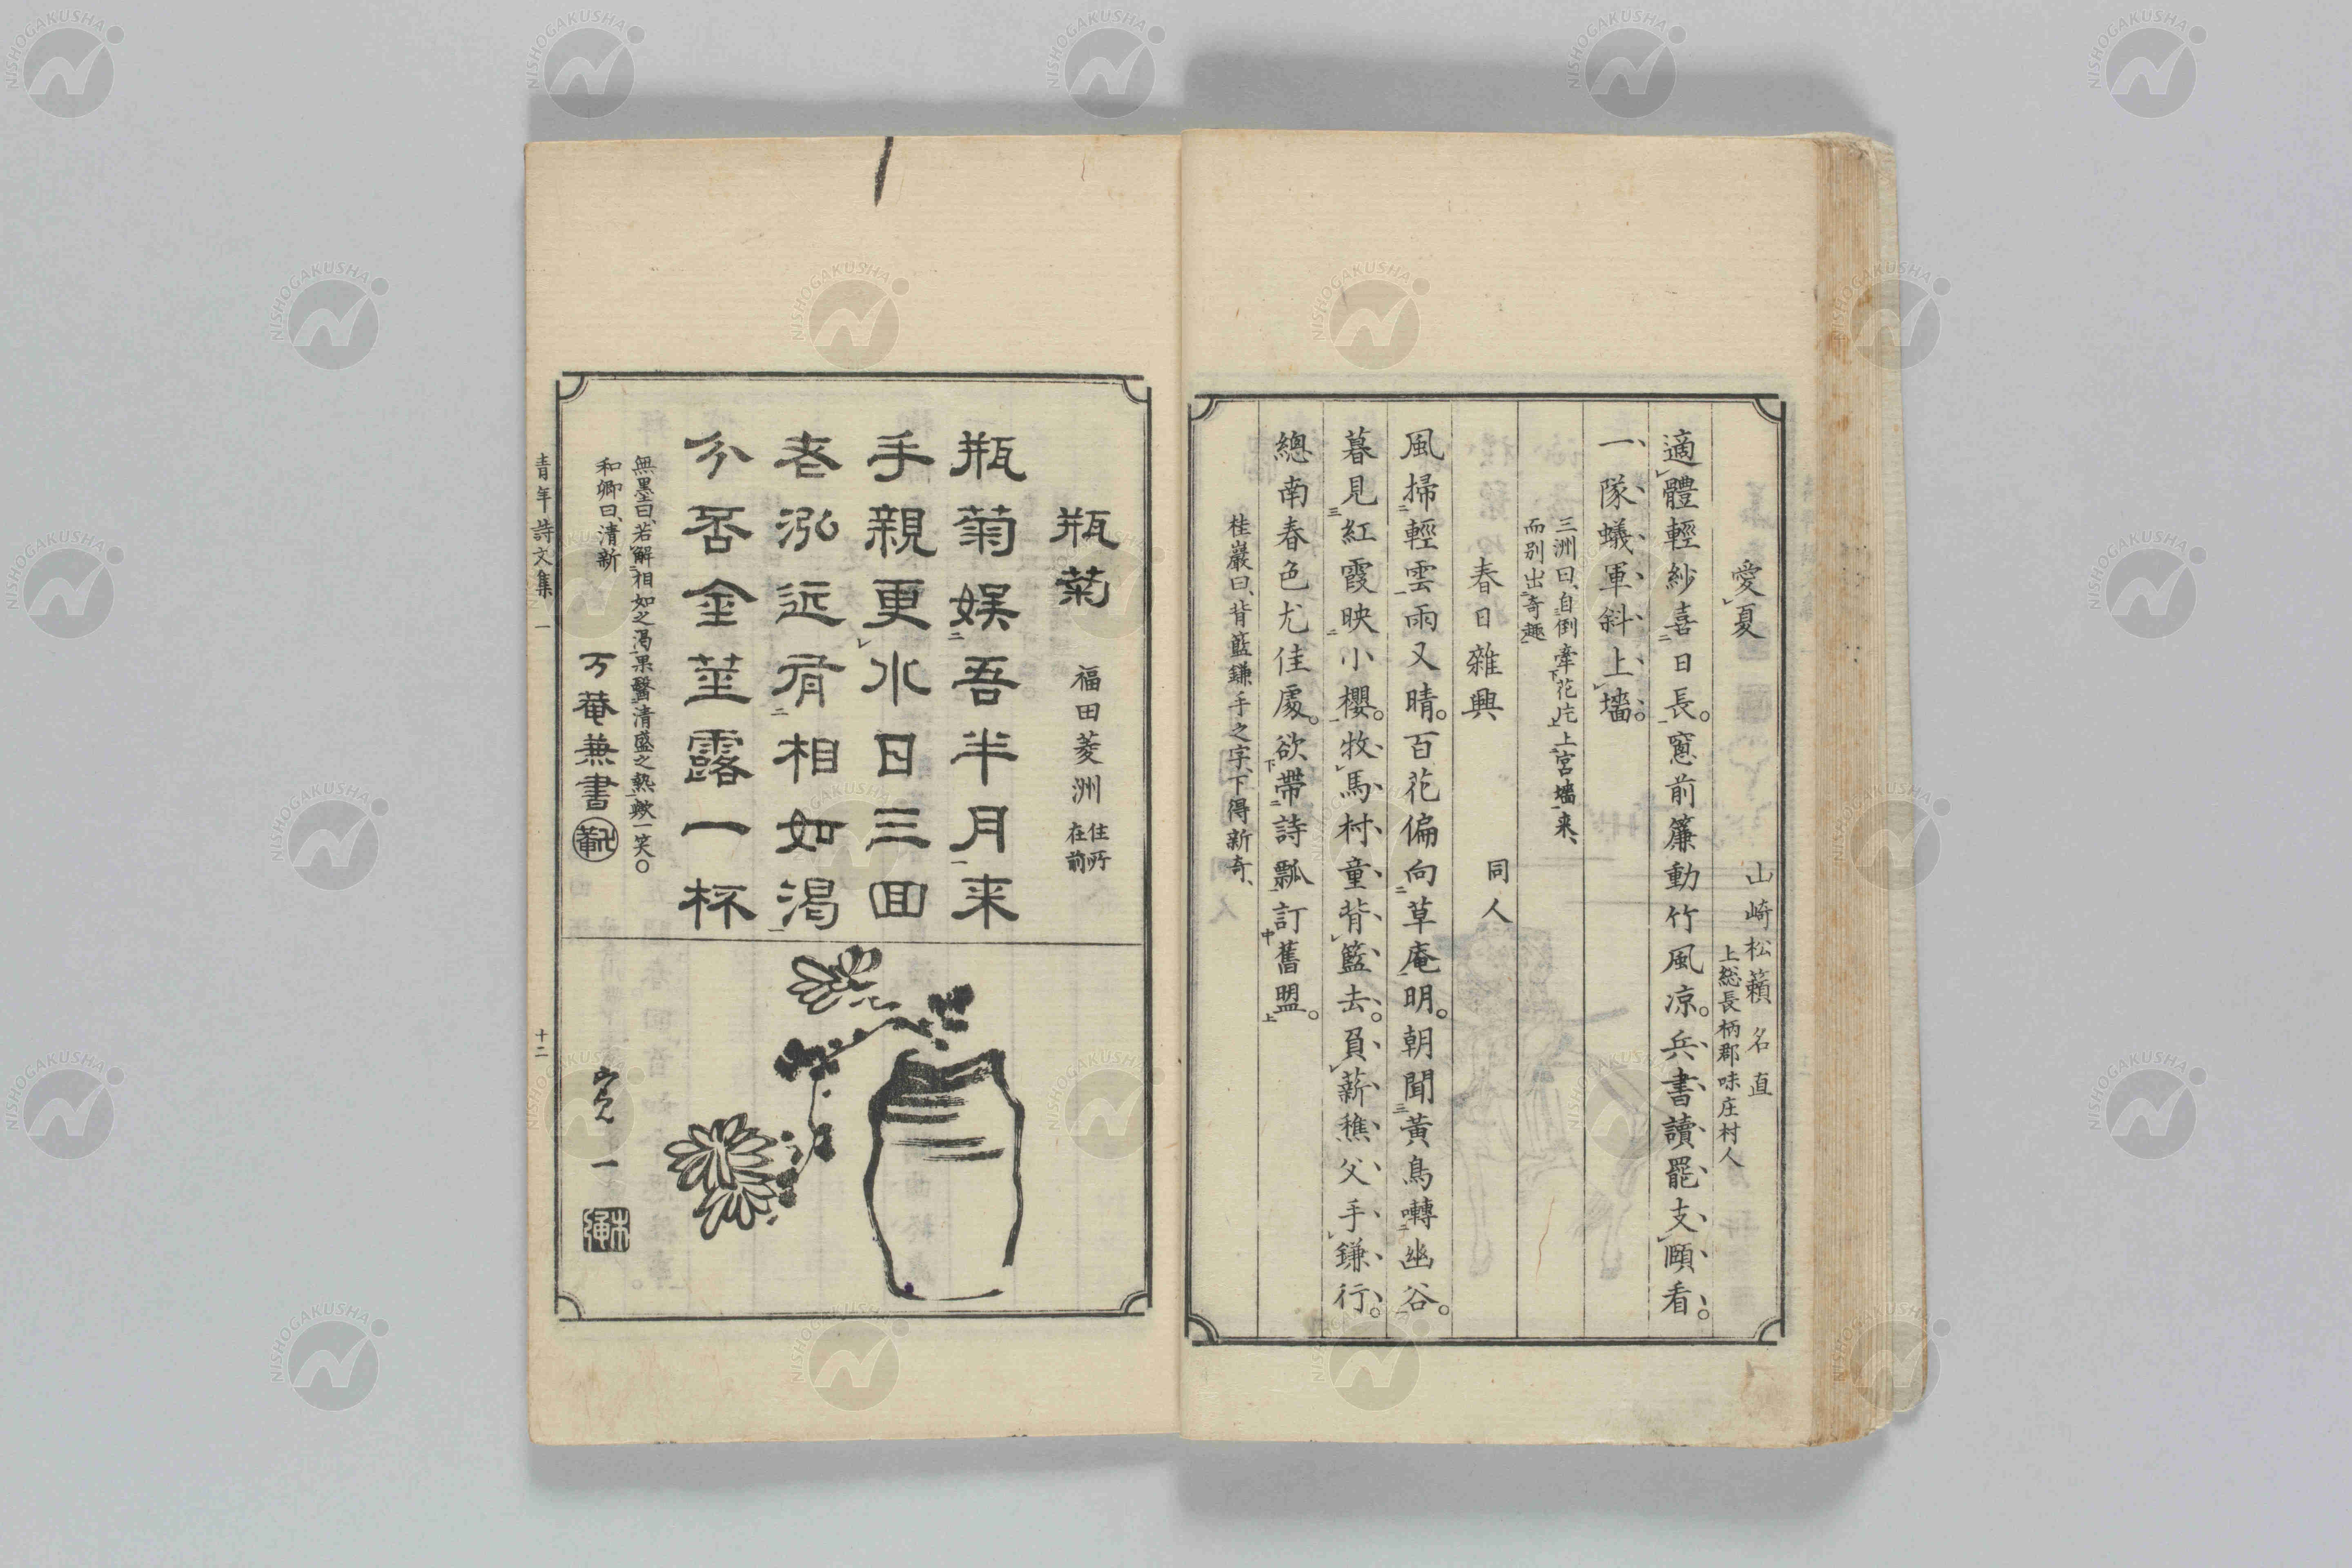 愛夏
山崎松籟 名直
上総長柄郡味庄村人
適體輕紗喜日長。窻前簾動竹風凉。兵書讀罷支頤看。
一隊蟻軍斜上墻。
三洲曰、自倒牽花片上宮墻来、
而別出奇趣
春日雜興 同人
風掃輕雲雨又晴。百花偏向草庵明。朝聞黃鳥囀幽谷。
暮見紅霞映小櫻。牧馬村童背籃去。負薪樵父手鎌行。
總南春色尤佳處。欲帶詩瓢訂舊盟。
桂巖曰、背籃鎌手之字、下得新奇、
瓶菊
福田菱洲 住所在前
瓶菊娯吾半月来
手親更水日三回
老泓远有相如渇
分否金莖露一杯
無墨曰、若解相如之渇果醫清盛之熱歟一笑〇
和卿曰、清新
万菴兼書
一
青年詩文集 一
十二
NISHOGAKUSHA